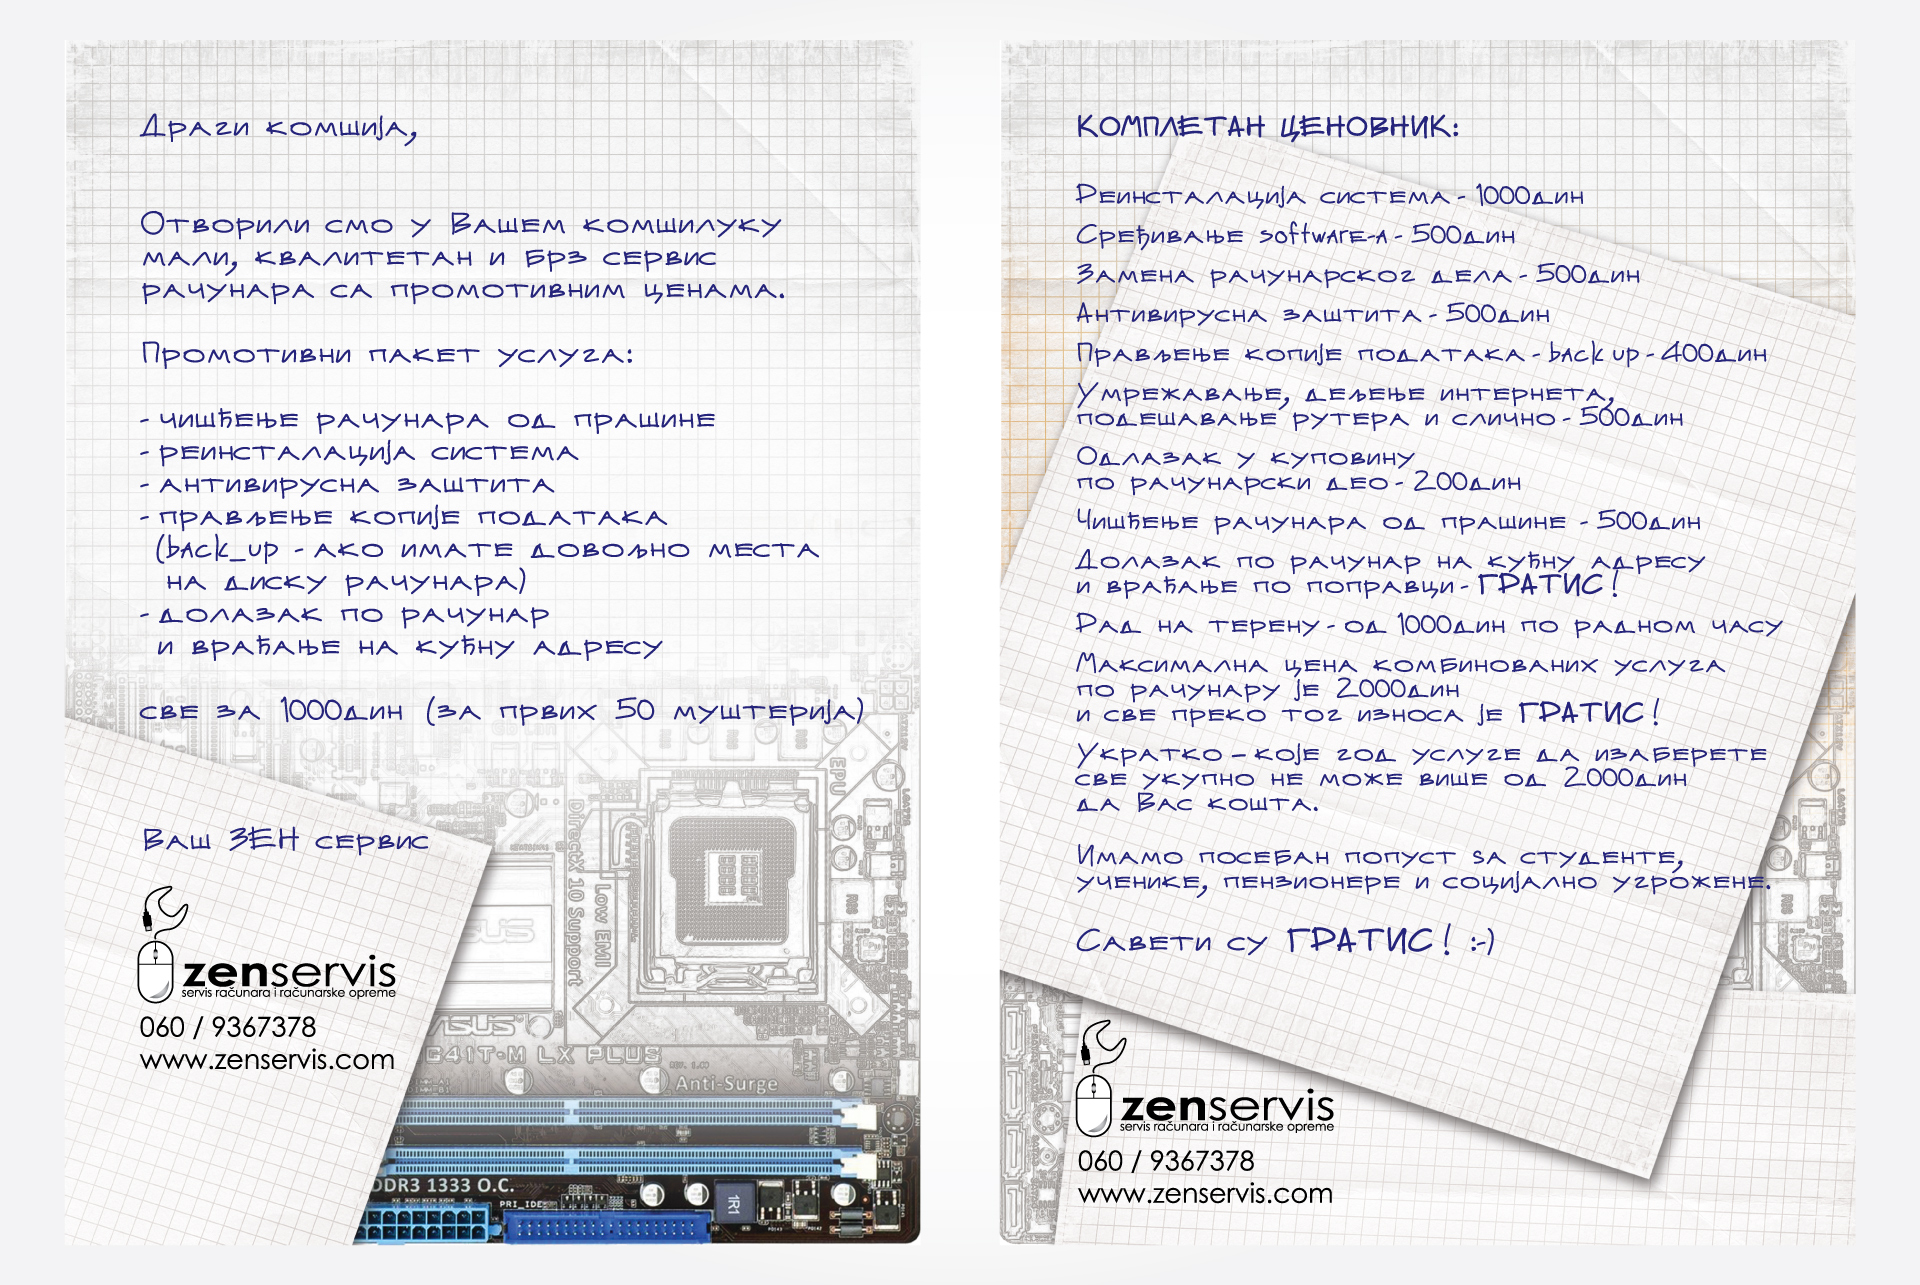 Драги комшија,
Отворили смо у Вашем комшилуку
мали, квалитетан и брз сервис
рачунара са промотивним ценама.
Промотивни пакет услуга:
- чишћење рачунара од прашине
- реинсталација система
- антивирусна заштита
- прављење копије података
(back_up - ако имате довољно места
на диску рачунара)
- долазак по рачунар
и враћање на кућну адресу
све за 1000дин (за првих 50 муштерија)
Ваш ЗЕН сервис
zenservis
servis računara i računarske opreme
060 / 9367378
www.zenservis.com
EPU
DirectX 10 Support
Low EMI
ASUS
G41T-M LX PLUS
Anti-Surge
DDR3 1333 O.C.
PRI_IDE
1R1
КОМПЛЕТАН ЦЕНОВНИК:
Реинсталација система - 1000дин
Сређивање software-а - 500дин
Замена рачунарског дела - 500дин
Антивирусна заштита - 500дин
Прављење копије података - back up - 400дин
Умрежавање, дељење интернета,
подешавање рутера и слично - 500дин
Одлазак у куповину
по рачунарски део - 200дин
Чишћење рачунара од прашине - 500дин
Долазак по рачунар на кућну адресу
и враћање по поправци - ГРАТИС!
Рад на терену - од 1000дин по радном часу
Максимална цена комбинованих услуга
по рачунару је 2000дин
и све преко тог износа је ГРАТИС!
Укратко – које год услуге да изаберете
све укупно не може више од 2000дин
да Вас кошта.
Имамо посебан попуст sa студенте,
ученике, пензионере и социјално угрожене.
Савети су ГРАТИС! :-)
zenservis
servis računara i računarske opreme
060 / 9367378
www.zenservis.com